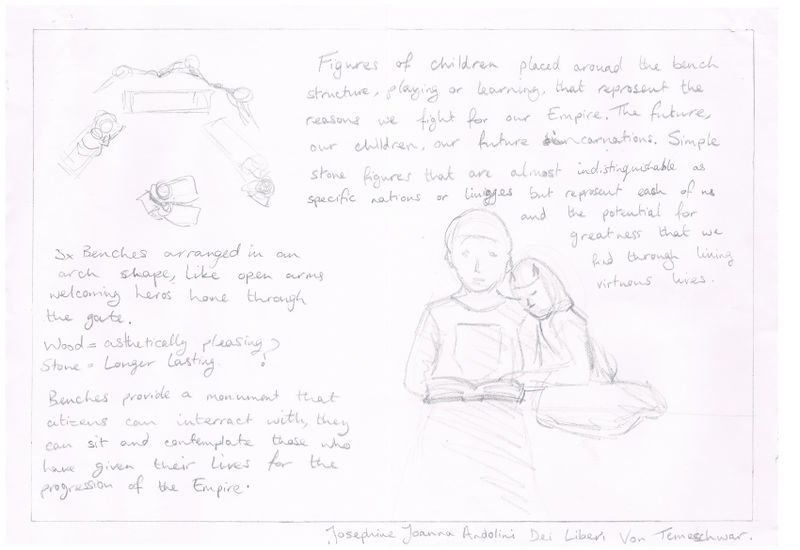 Figures of children placed around the bench
structure, playing or learning, that represent the
reasons we fight for our Empire. The future,
our children, our future incarnations. Simple
stone figures that are almost indistinguishable as
specific nations or liniages but represent each of us
and the potential for
greatness that we
find through living
virtuous lives.
3x Benches arranged in an
arch shape, like open arms
welcoming heros home through
the gate.
Wood = asthetically pleasing?
Stone = Longer lasting. ?
Benches provide a monument that
citizens can interract with, they
can sit and contemplate those who
have given their lives for the
progression of the Empire.
Josephine Joanna Andolini Dei Liberi Von Temeschwar.